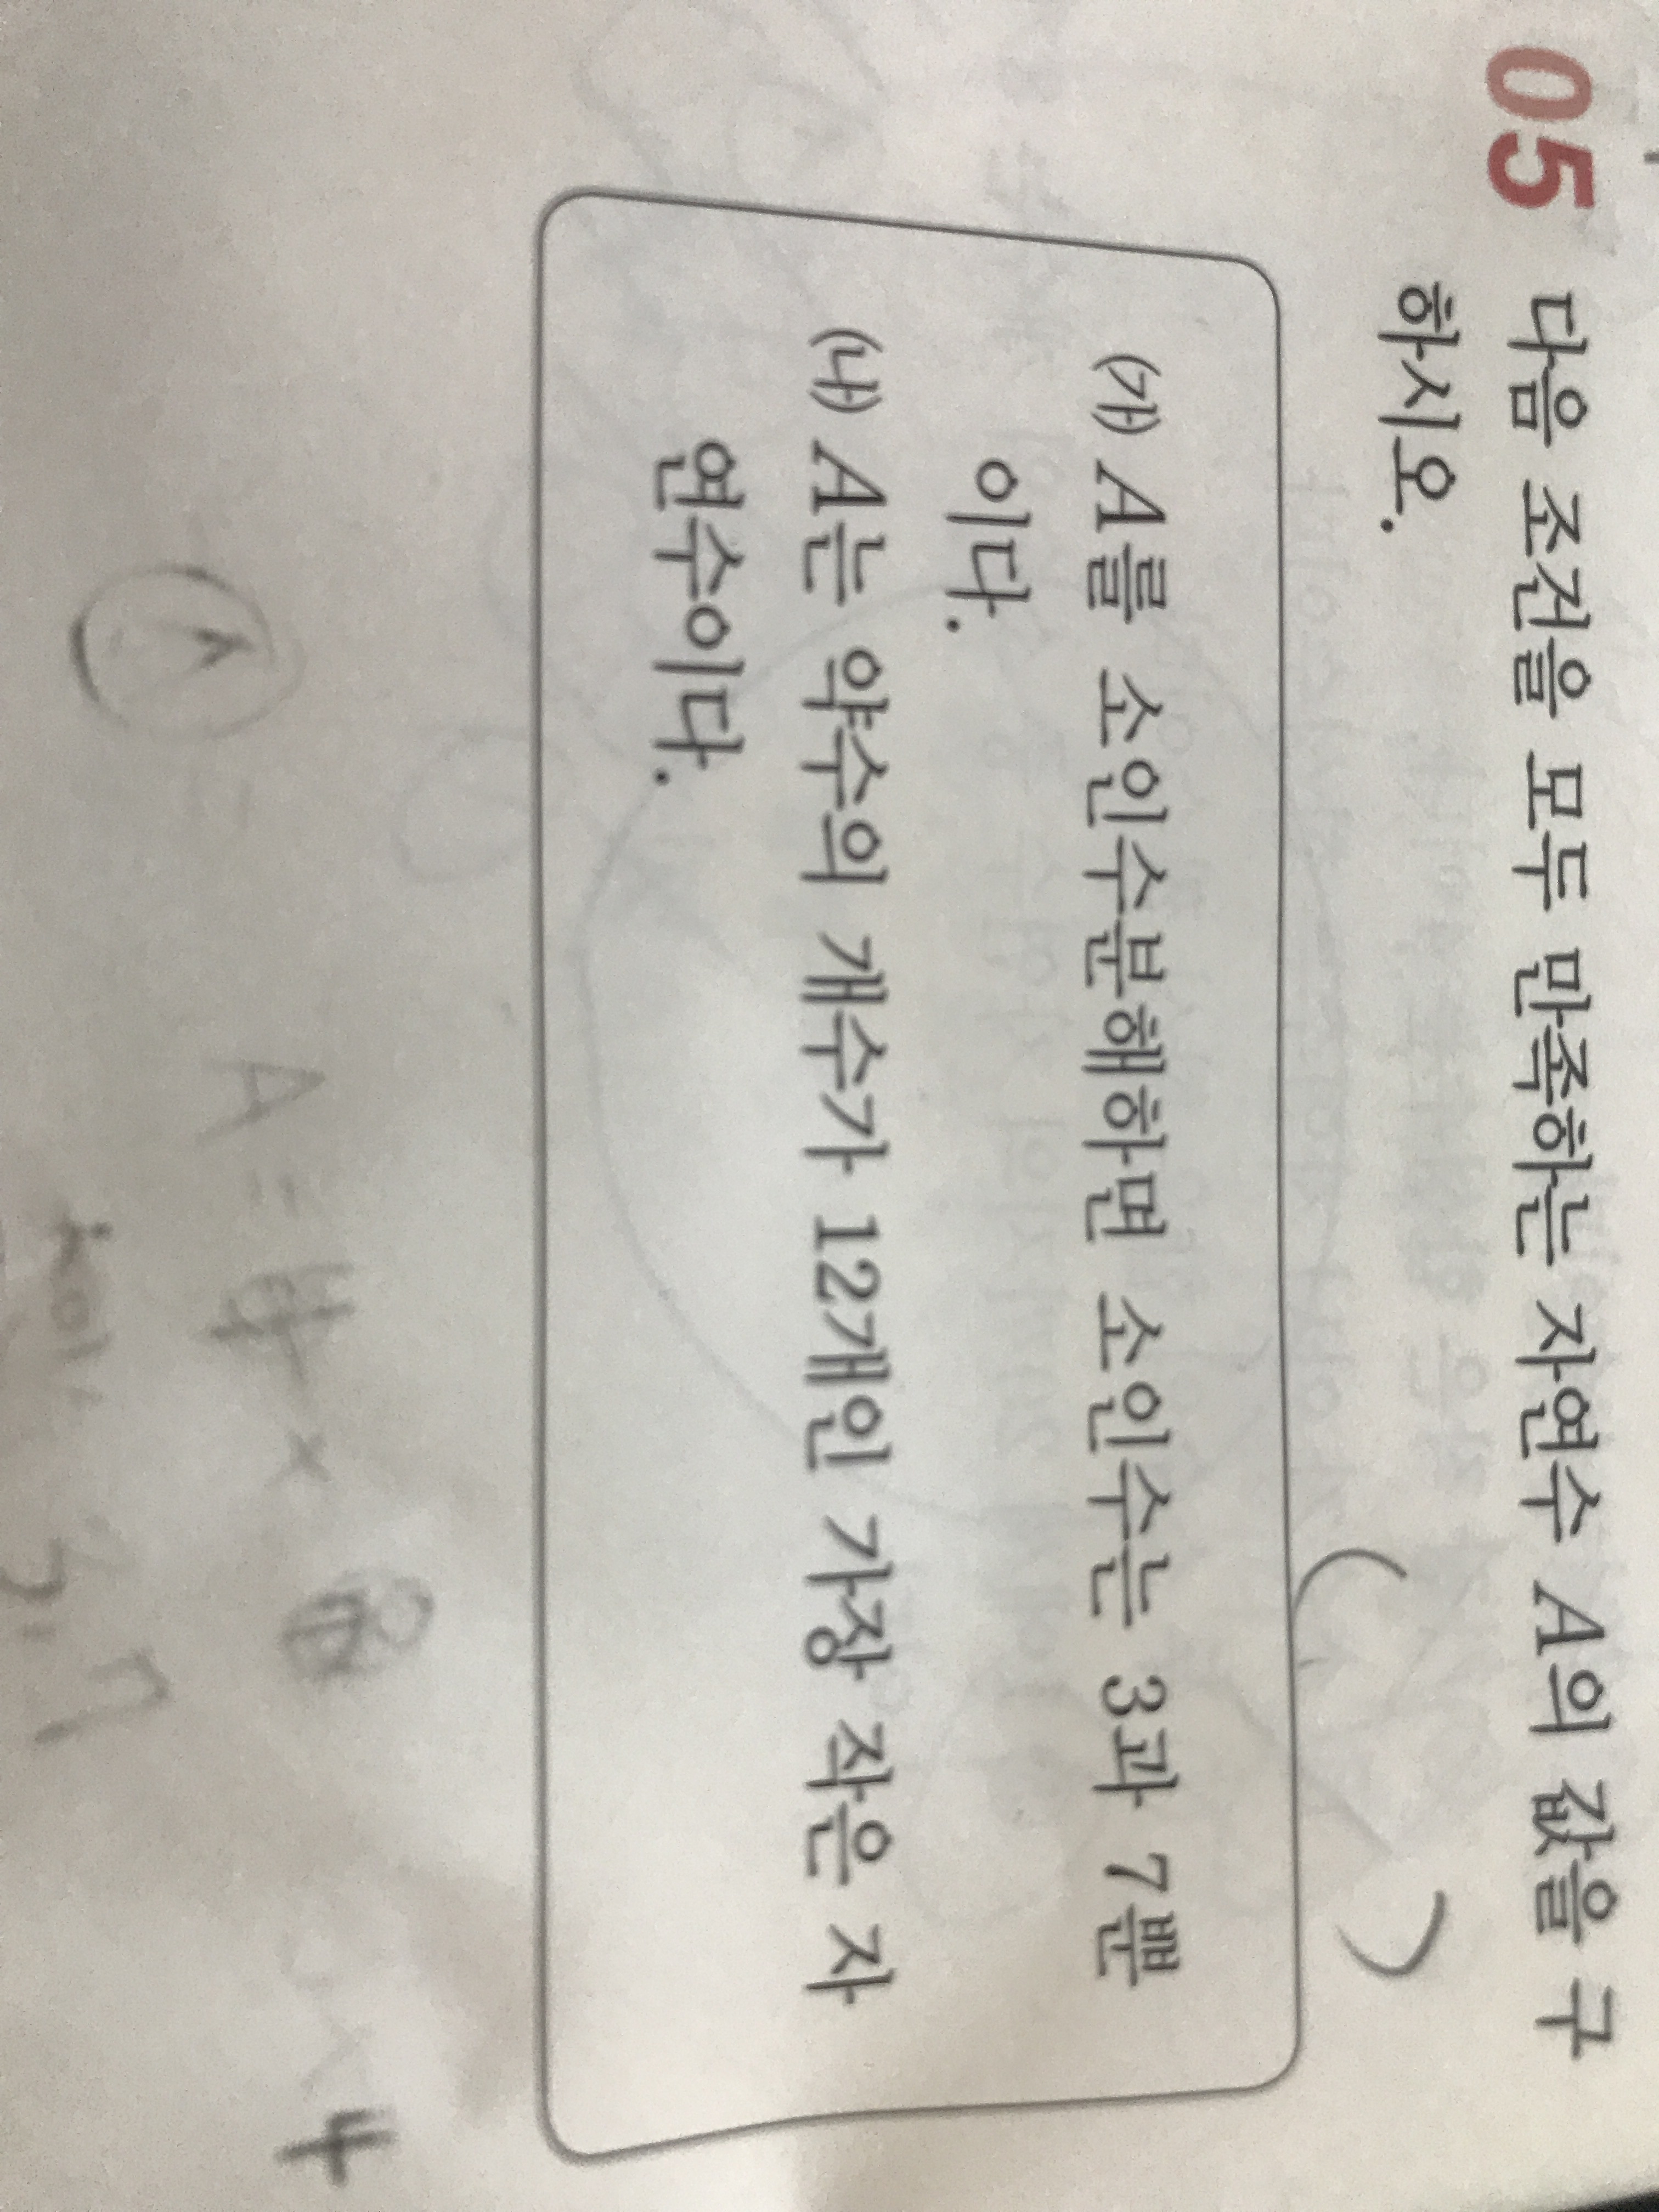 05 다음 조건을 모두 만족하는 자연수 A의 값을 구
하시오.
(가) A를 소인수분해하면 소인수는 3과 7뿐
이다.
(나) A는 약수의 개수가 12개인 가장 작은 자
연수이다.
A = 4 ×
4
3, 7